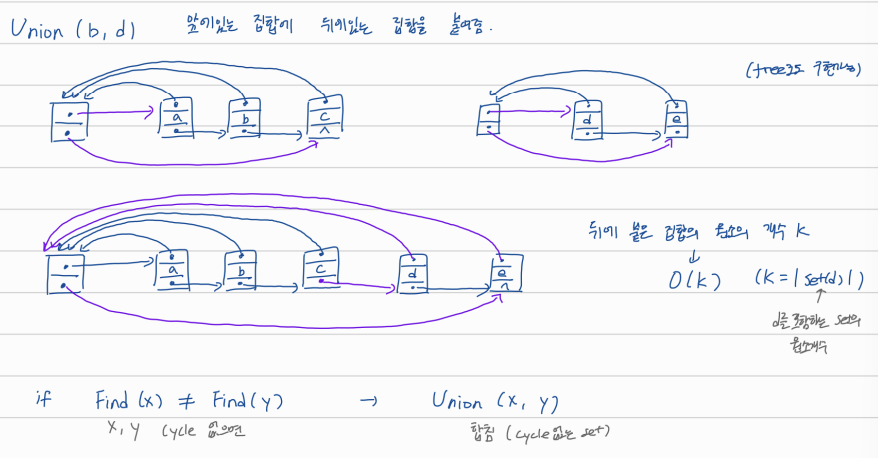 Union (b, d) 앞에있는 집합에 뒤에있는 집합을 붙여줌.
(tree로도 구현가능)
a b c ^ d e
a b c d e ^
뒤에 붙은 집합의 원소의 개수 k
↓
O(k) (k = | set(d) | )
↑
d를 포함하는 set의
원소개수
if Find (x) ≠ Find(y) → Union (x, y)
x, y cycle 없으면 합침 (cycle 없는 set)